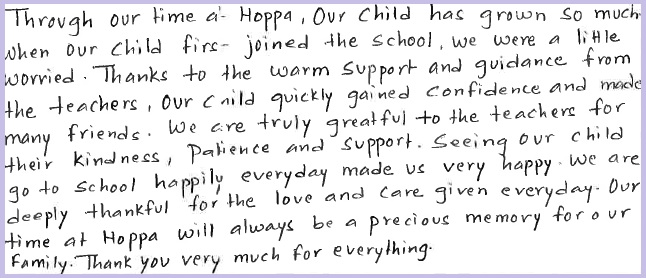 Through our time at Hoppa, Our Child has grown so much.
when our child first joined the school, we were a little
worried. Thanks to the warm support and guidance from
the teachers, Our Child quickly gained confidence and made
many friends. We are truly greatful to the teachers for
their kindness, Patience and support. Seeing our child
go to school happily everyday made us very happy. We are
deeply thankful for the love and care given everyday. Our
time at Hoppa will always be a precious memory for our
Family. Thank you very much for everything.